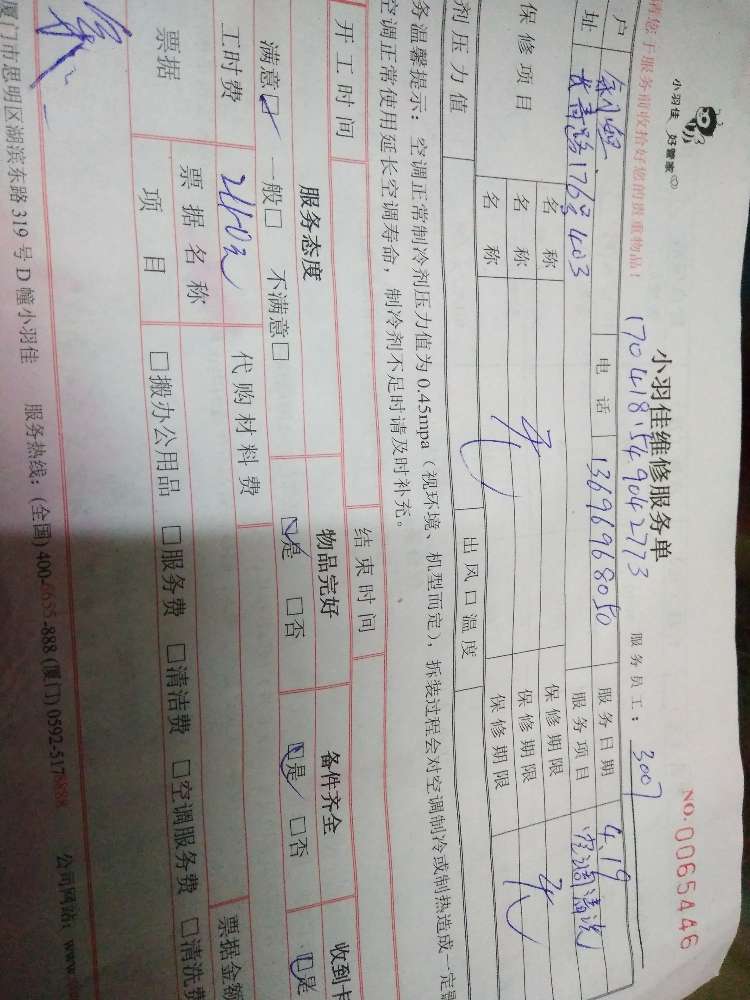 小羽佳 好管家
请您于服务前收拾好您的贵重物品！
小羽佳维修服务单
1704181549042773
服务员工： 3007
NO.0065446
户
电话 13696968050
服务日期 4.19
址 长青路176号403
服务项目 空调清洗
保修项目
名称 保修期限
名称 无 保修期限 无
名称 保修期限
剂压力值 出风口温度
务温馨提示：空调正常制冷剂压力值为0.45mpa（视环境、机型而定），拆装过程会对空调制冷或制热造成一定
空调正常使用延长空调寿命，制冷剂不足时请及时补充。
开工时间 结束时间
服务态度 物品完好 备件齐全 收到
满意☑ 一般□ 不满意□ ☑是 □否 ☑是 □否 ☑是
工时费 代购材料费
票据 票据名称 票据金额
项目 □搬办公用品 □服务费 □清洁费 □空调服务费 □清洗费
厦门市思明区湖滨东路319号D幢小羽佳 服务热线：(全国)400-6655-888 (厦门)0592-5178888 公司网站：www.